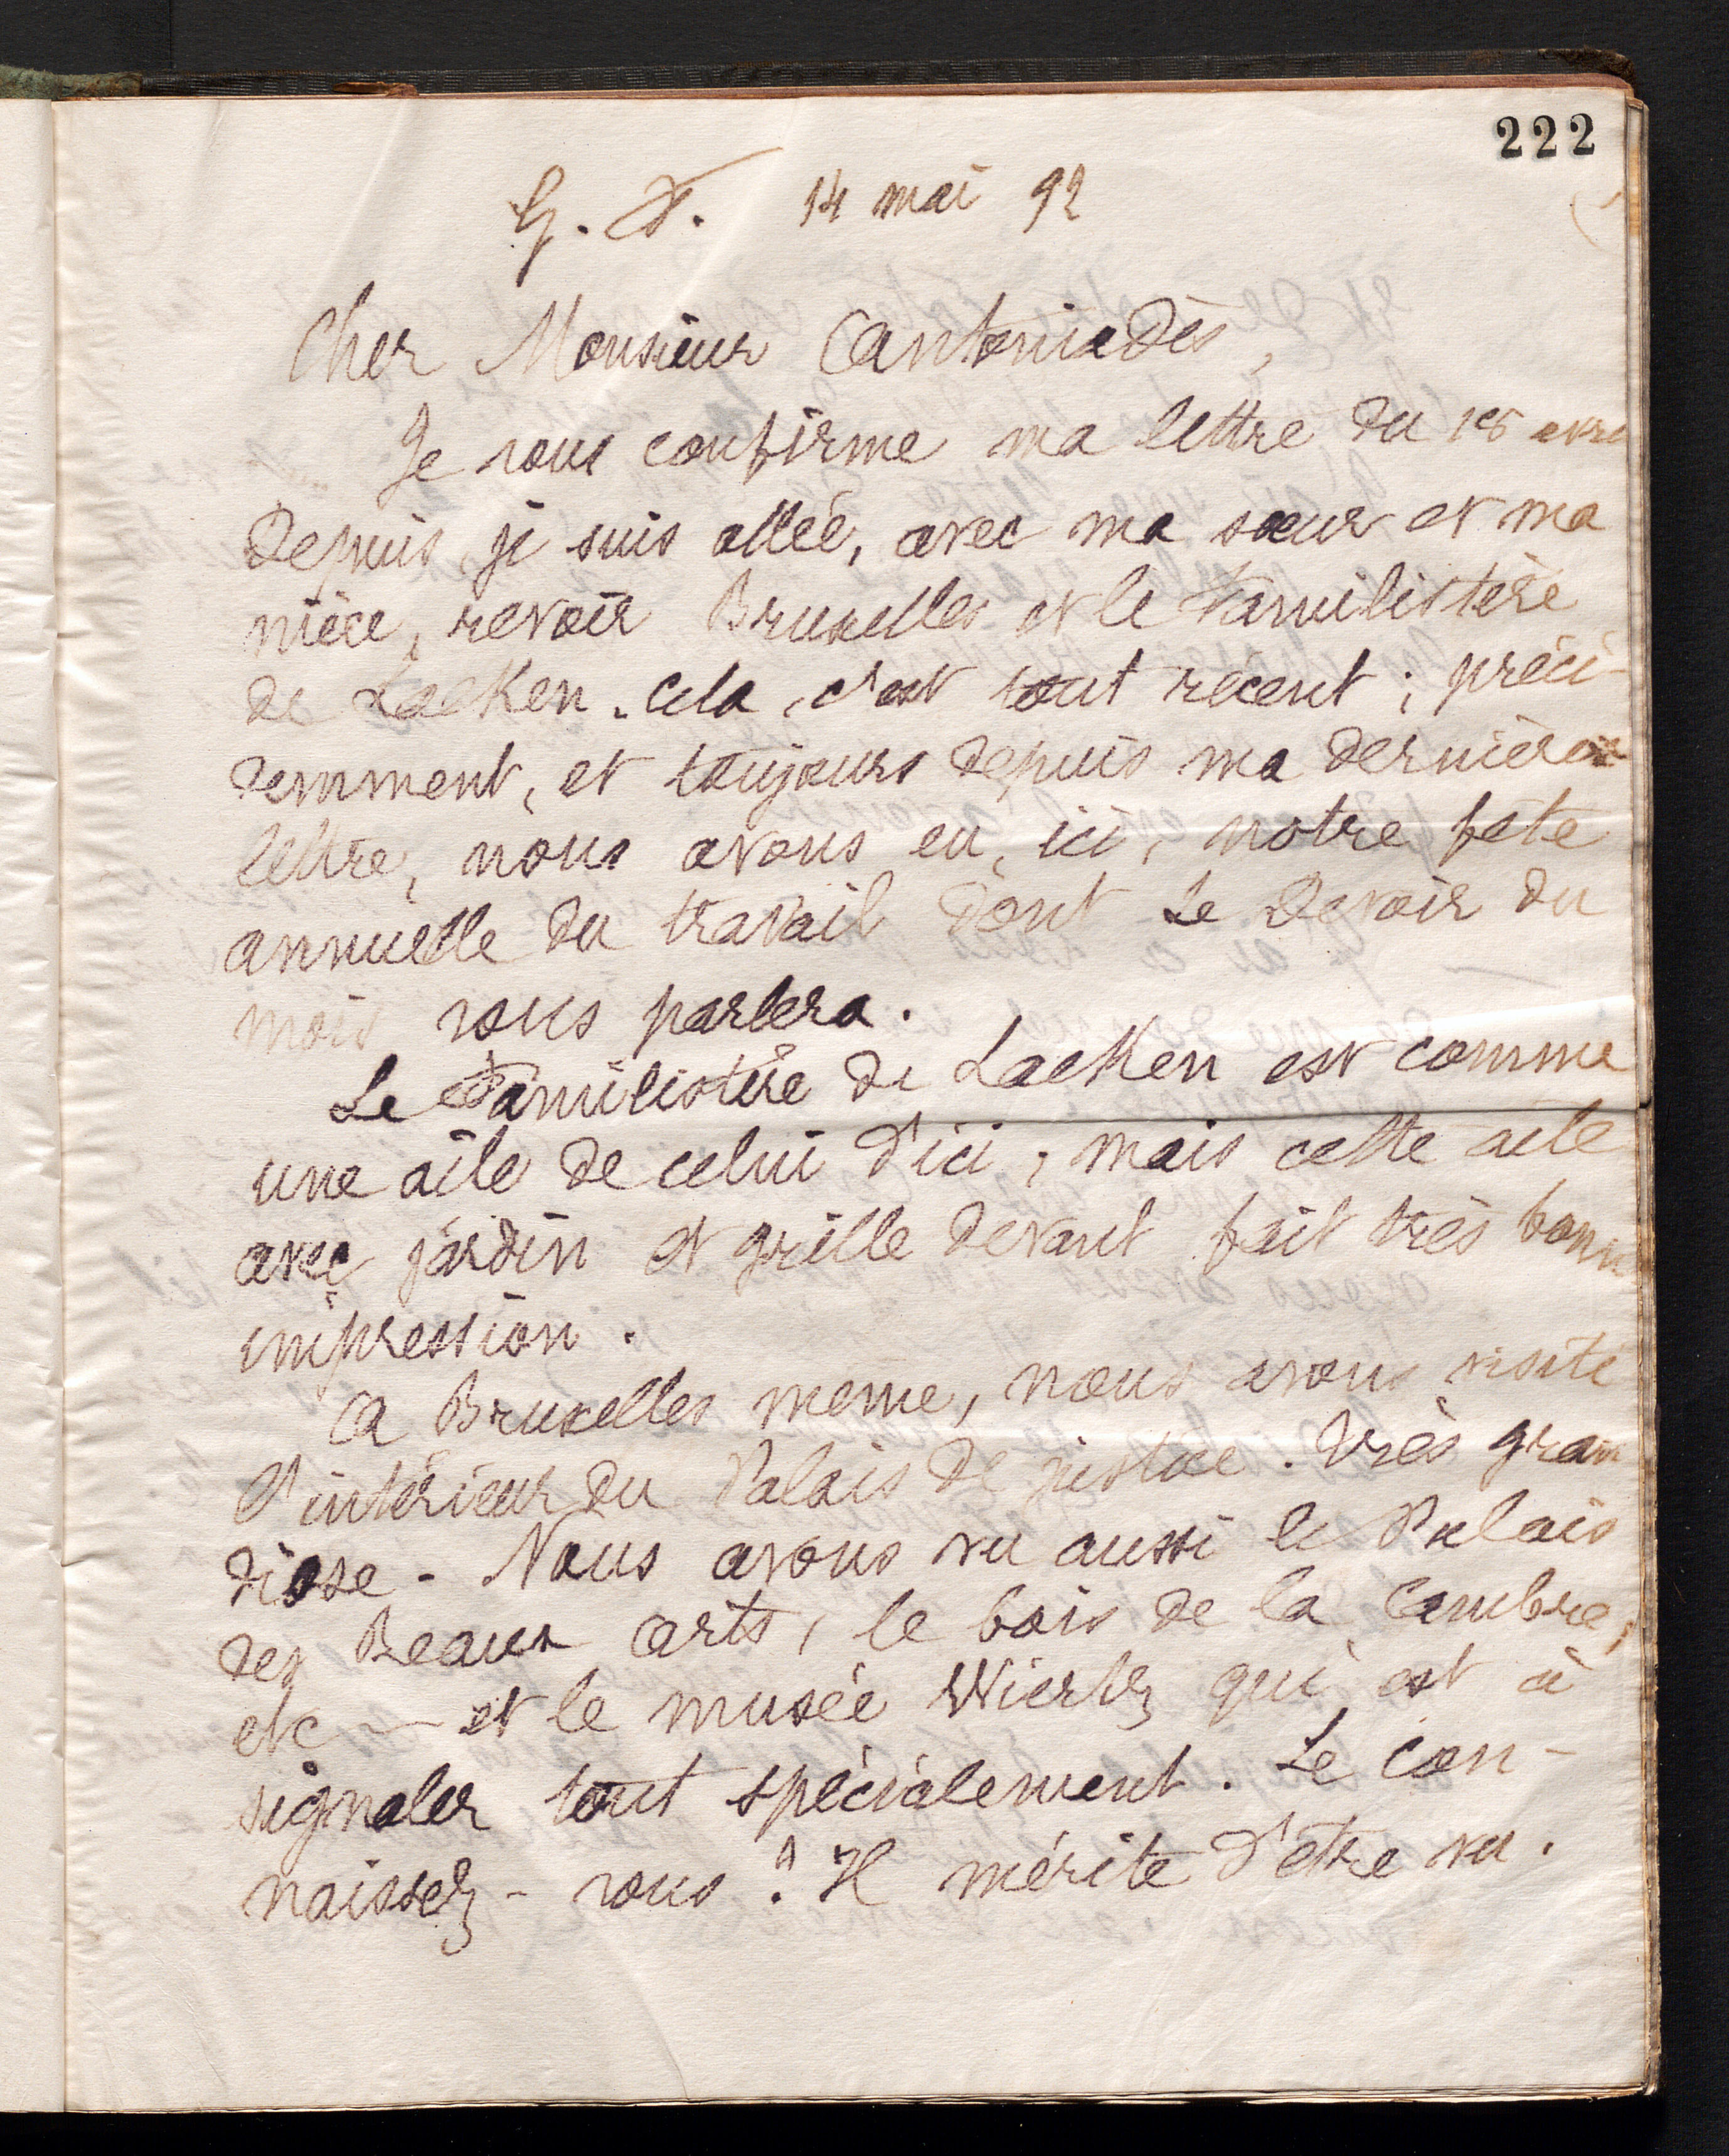 222
G. F. 14 mai 92
Cher Monsieur Antoniadès,
Je vous confirme ma lettre du
Depuis, je suis allée, avec ma sœur et ma
nièce, revoir Bruxelles et le Familistère
de Laeken. Cela, c'est tout récent ; précé-
demment, et toujours depuis ma dernière
lettre, nous avons eu, ici, notre fête
annuelle du travail dont Le Devoir du
mois vous parlera.
Le Familistère de Laeken est comme
une aile de celui d'ici, mais cette aile
avec jardin et grille devant fait très bonne
impression.
A Bruxelles même, nous avons visité
l'intérieur du Palais de justice. Très gran
diose - Nous avons vu aussi le Palais
des Beaux arts, le bois de la Cambre,
etc — et le musée Wiertz qui est à
signaler tout spécialement. Le con-
naissez-vous ? Il mérite d'être vu.